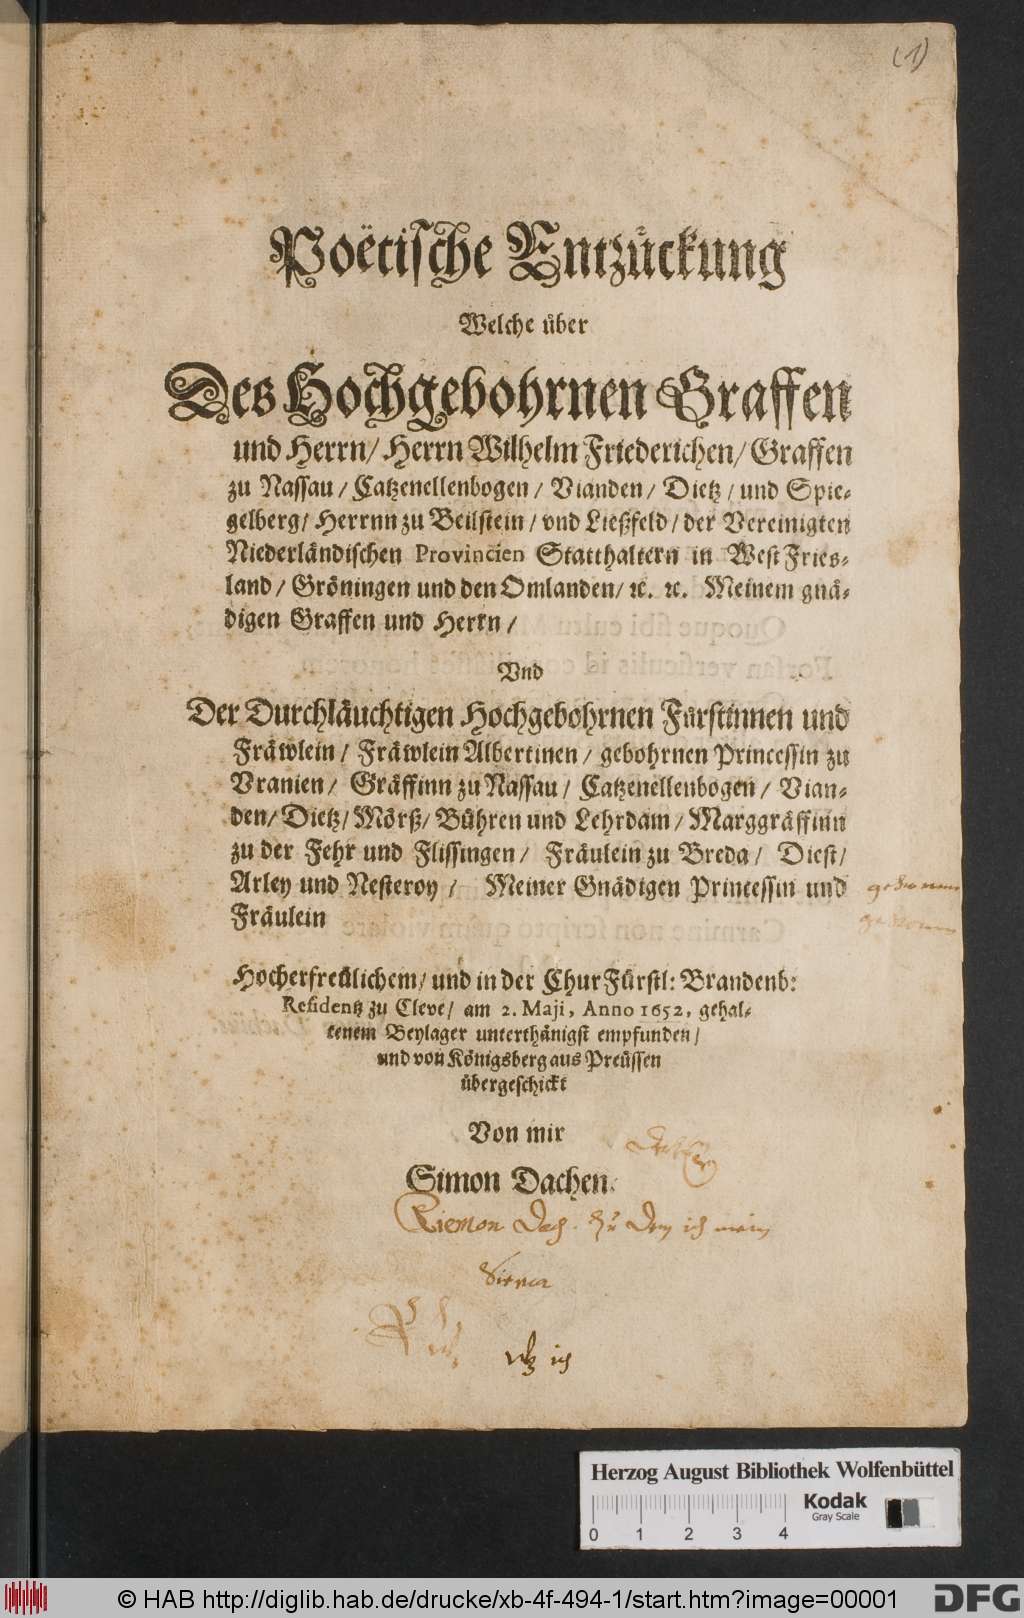 (1)
Poëtische Entzückung
Welche über
Des Hochgebohrnen Graffen
und Herrn/ Herrn Wilhelm Friederichen/ Graffen
zu Nassau/ Catzenellenbogen/ Vianden/ Dietz/ und Spie-
gelberg/ Herrnn zu Beilstein/ vnd Ließfeld/ der Vereinigten
Niederländischen Provincien Statthaltern in WestFries-
land/ Gröningen und den Omlanden/ ꝛc. ꝛc. Meinem gnä-
digen Graffen und Herrn/
Vnd
Der Durchläuchtigen Hochgebohrnen Fürstinnen und
Fräwlein/ Fräwlein Albertinen/ gebohrnen Princessin zu
Vranien/ Gräffinn zu Nassau/ Catzenellenbogen/ Vian-
den/ Dietz/ Mörß/ Bühren und Lehrdam/ Marggräffinn
zu der Fehr und Flissingen/ Fräulein zu Breda/ Diest/
Arley und Nesteroy/ Meiner Gnädigen Princessin und
Fräulein
Hocherfreülichem/ und in der ChurFürstl: Brandenb:
Residentz zu Cleve/ am 2. Maji, Anno 1652, gehal-
tenem Beylager unterthänigst empfunden/
und von Königsberg aus Preüssen
übergeschickt
Von mir
Simon Dachen.
Dach
ich
Herzog August Bibliothek Wolfenbüttel
Kodak
Gray Scale
0 1 2 3 4
© HAB http://diglib.hab.de/drucke/xb-4f-494-1/start.htm?image=00001
DFG